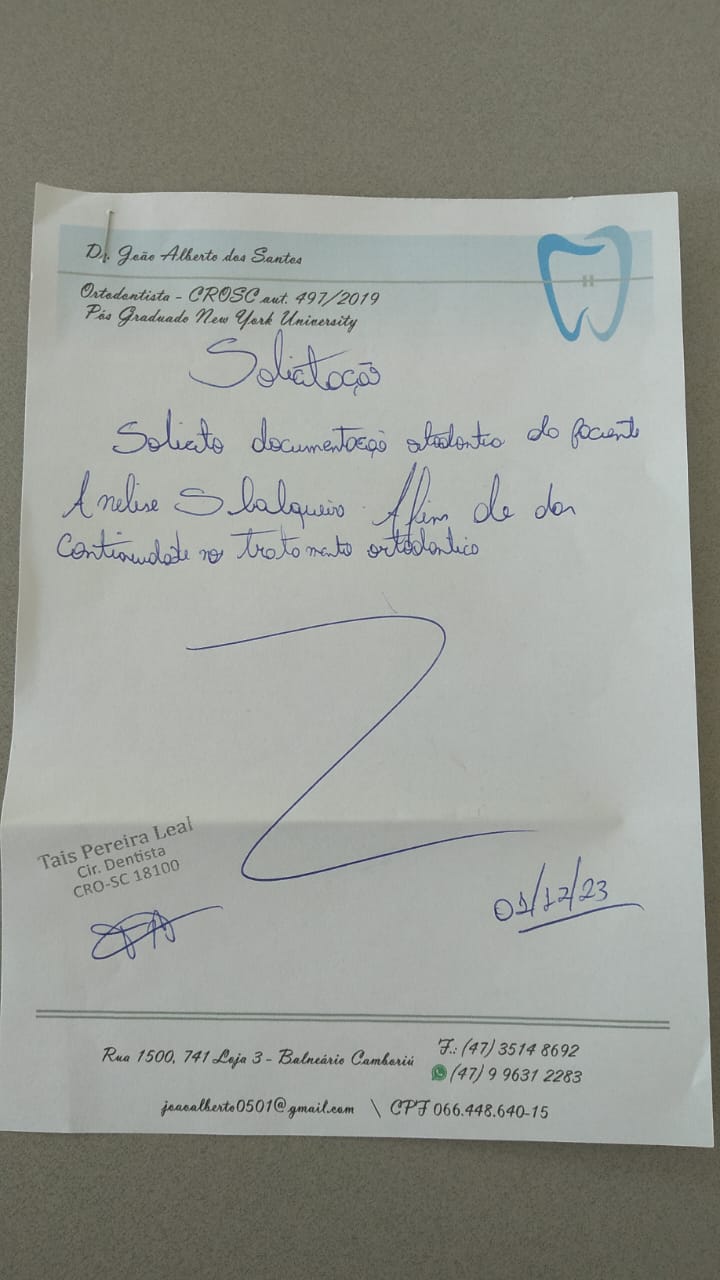 Dr. João Alberto dos Santos
Ortodontista - CROSC aut. 497/2019
Pós Graduado New York University
Solicitação
Solicito documentação otodontia do paciente
Anelise Sbalqueiro. Afim de dar
continuidate no tratamento ortodontico
Tais Pereira Leal
Cir. Dentista
CRO-SC 18100
01/12/23
Rua 1500, 741 Loja 3 - Balneário Camboriú
F.: (47) 3514 8692
(47) 9 9631 2283
joaoalberto0501@gmail.com \ CPF 066.448.640-15